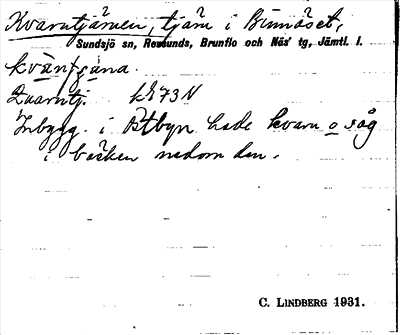 Kvarntjärnen, tjärn i Binnäset,
Sundsjö sn, Revsunds, Brunflo och Näs' tg, Jämtl. l.
kvä̀nṇtjäna.
Quarntj. kA 73 N
Inbygg. i Östbyn hade kvarn o såg
i bäcken nedom den.
C. LINDBERG 1931.